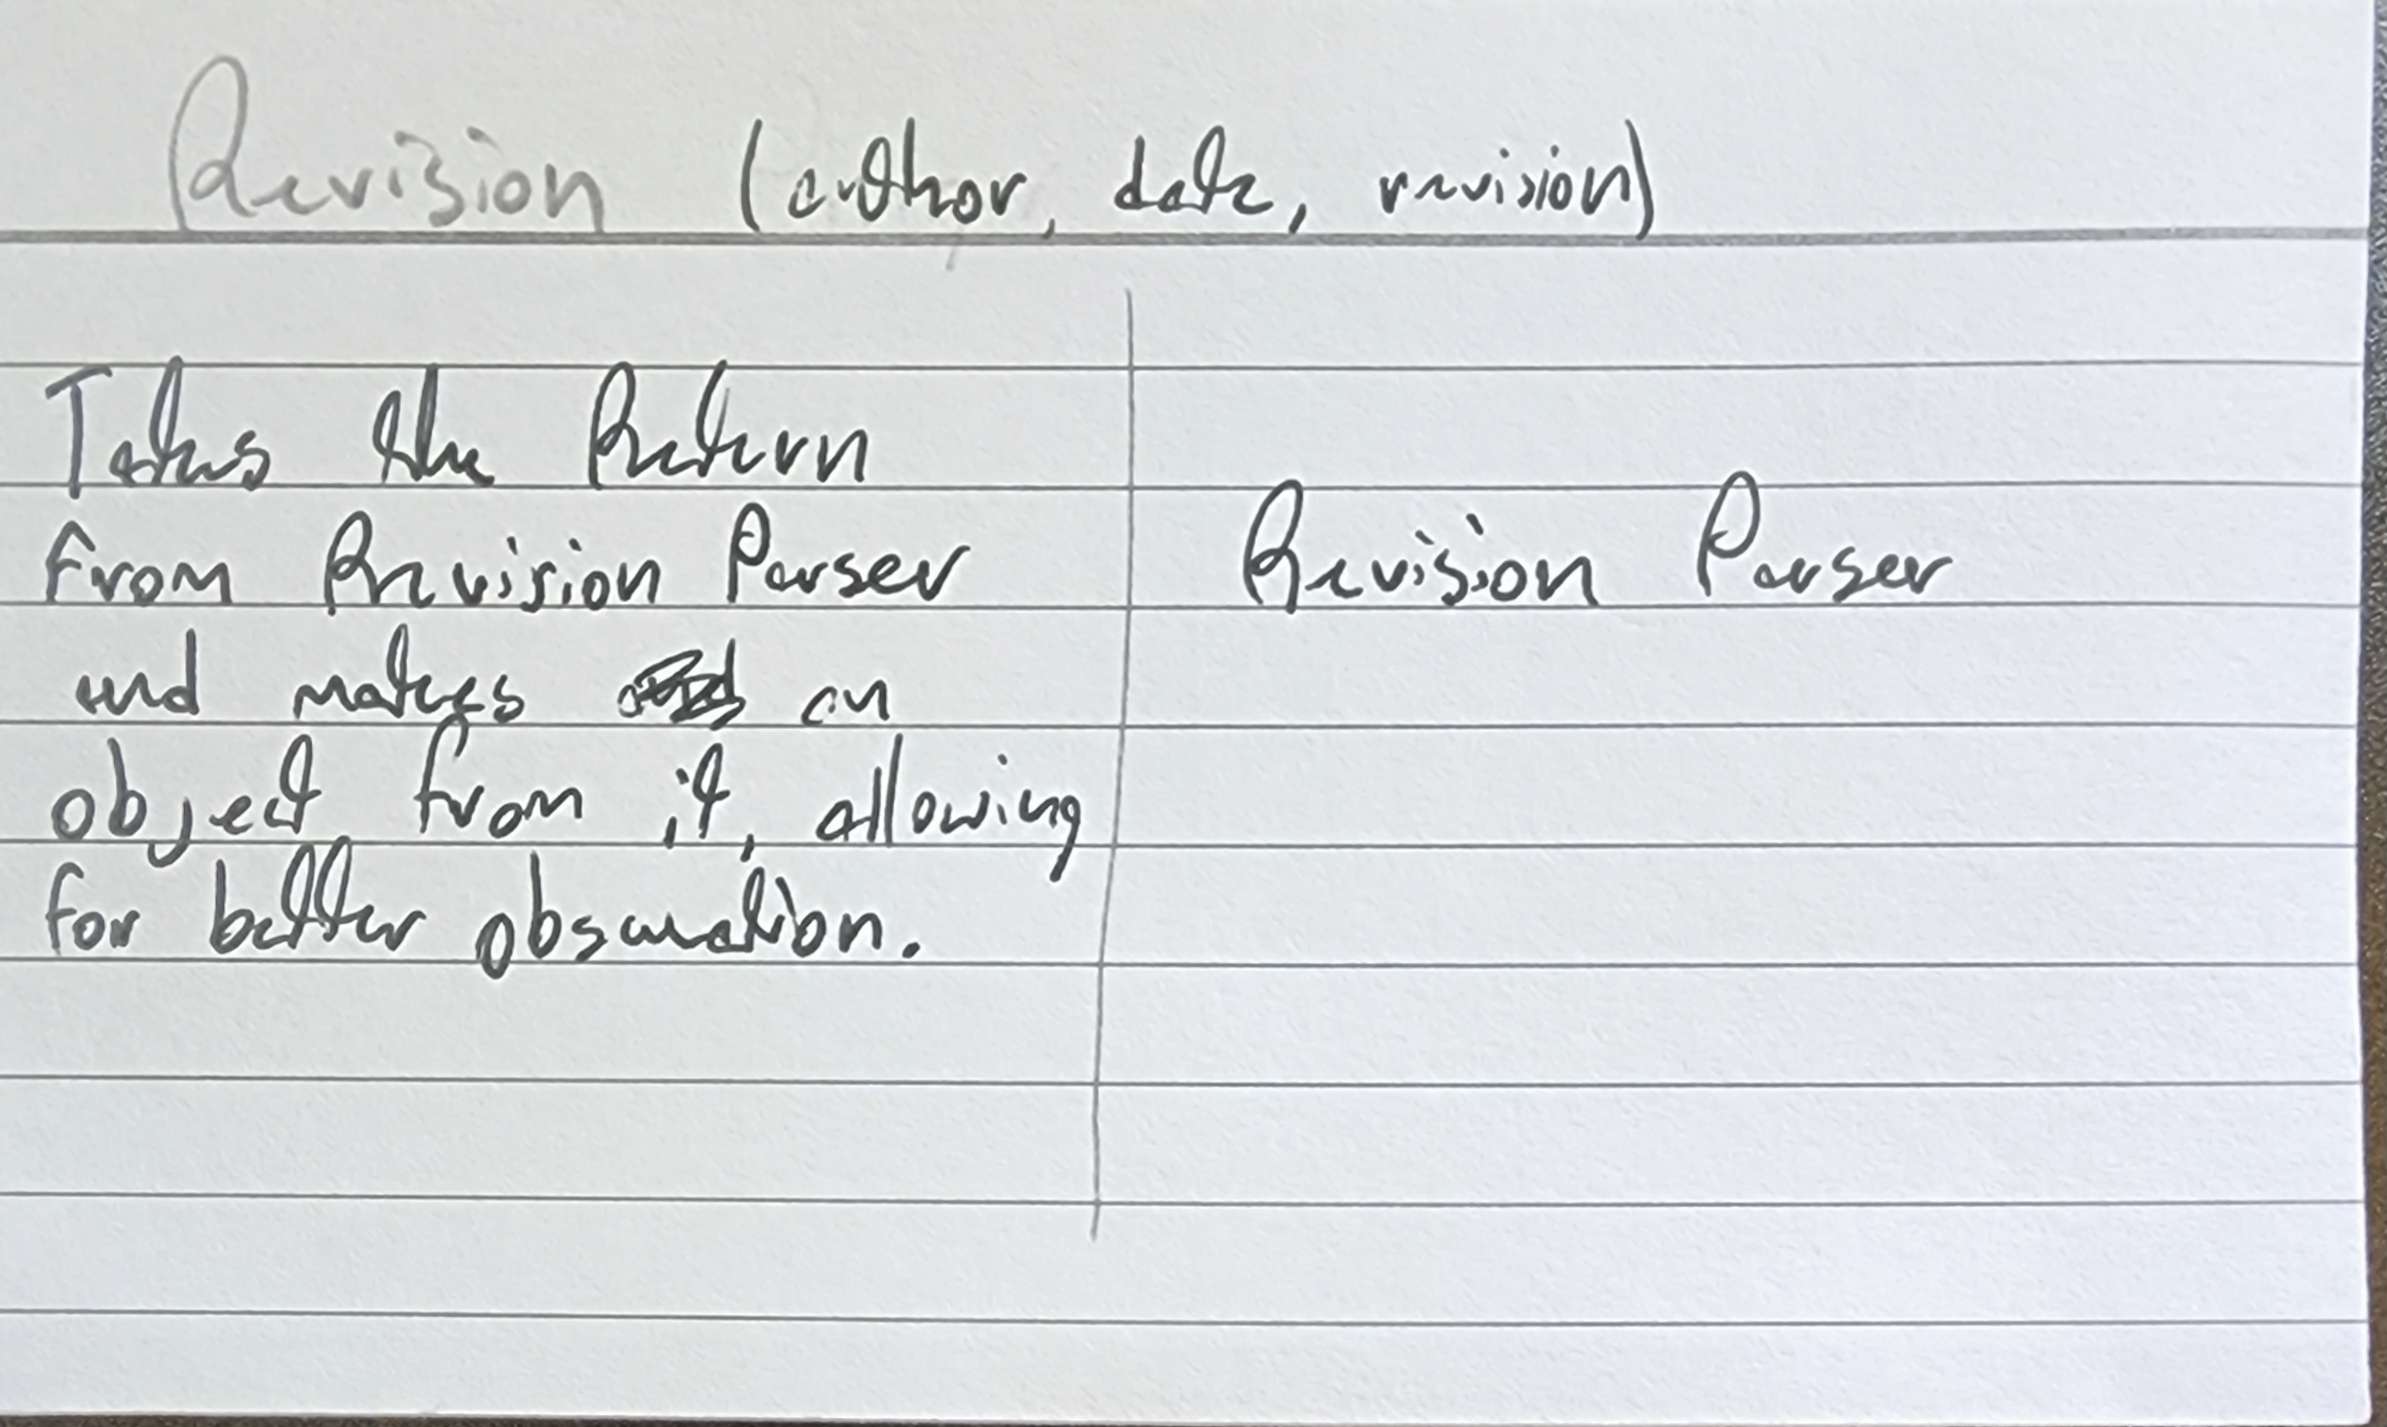 Revision (author, date, revision)
Takes the Return
from Revision Parser
and makes an
object from it, allowing
for better observation.
Revision Parser